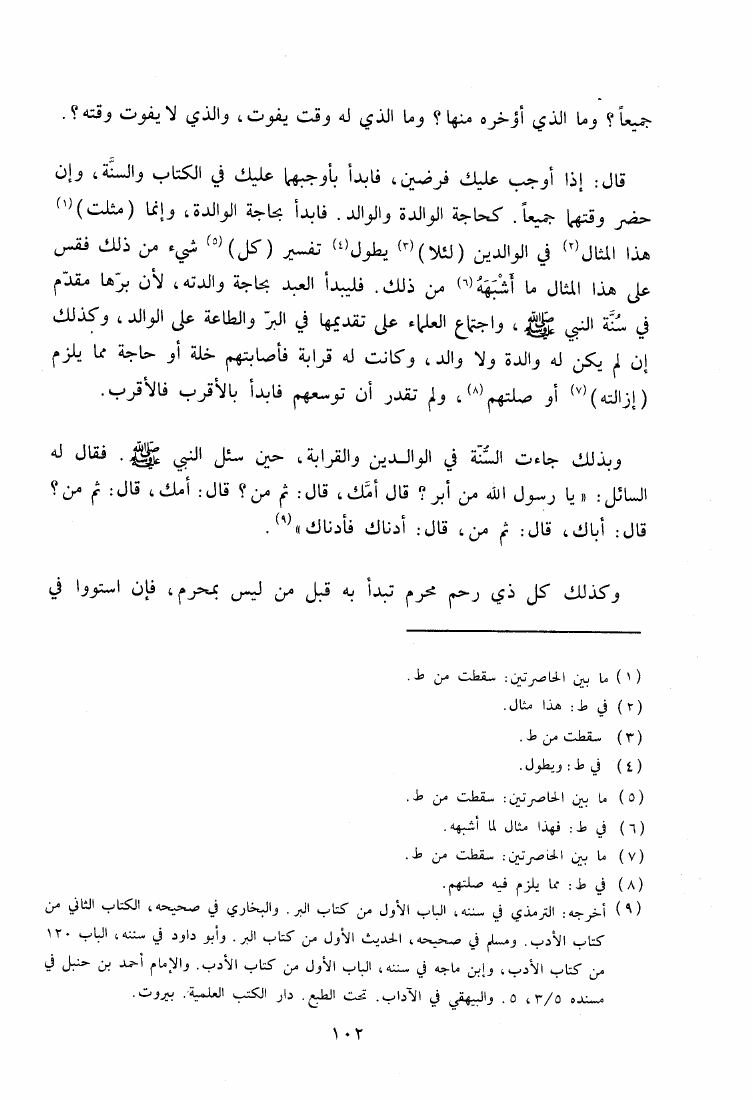 جميعاً؟ وما الذي أؤخره منها؟ وما الذي له وقت يفوت، والذي لا يفوت وقته؟.
قال: إذا أوجب عليك فرضين، فابدأ بأوجبهما عليك في الكتاب والسنَّة، وإن
حضر وقتهما جميعاً. كحاجة الوالدة والوالد. فابدأ بحاجة الوالدة، وإنما (مثلت)(١)
هذا المثال(٢) في الوالدين (لئلا)(٣) يطول(٤) تفسير (كل)(٥) شيء من ذلك فقس
على هذا المثال ما أَشْبَهَهُ(٦) من ذلك. فليبدأ العبد بحاجة والدته، لأن برّها مقدّم
في سُنَّة النبي ﷺ، واجتماع العلماء على تقديمها في البرّ والطاعة على الوالد، وكذلك
إن لم يكن له والدة ولا والد، وكانت له قرابة فأصابتهم خلة أو حاجة مما يلزم
(إزالته)(٧) أو صلتهم(٨)، ولم تقدر أن توسعهم فابدأ بالأقرب فالأقرب.
وبذلك جاءت السُّنّة في الوالدين والقرابة، حين سئل النبي ﷺ. فقال له
السائل: «يا رسول الله من أبر؟ قال أمَّك، قال: ثم من؟ قال: أمك، قال: ثم من؟
قال: أباك، قال: ثم من، قال: أدناك فأدناك»(٩).
وكذلك كل ذي رحم محرم تبدأ به قبل من ليس بمحرم، فإن استووا في
(١) ما بين الحاصرتين: سقطت من ط.
(٢) في ط: هذا مثال.
(٣) سقطت من ط.
(٤) في ط: ويطول.
(٥) ما بين الحاصرتين: سقطت من ط.
(٦) في ط: فهذا مثال لما أشبهه.
(٧) ما بين الحاصرتين: سقطت من ط.
(٨) في ط: مما يلزم فيه صلتهم.
(٩) أخرجه: الترمذي في سننه، الباب الأول من كتاب البر. والبخاري في صحيحه، الكتاب الثاني من
كتاب الأدب. ومسلم في صحيحه، الحديث الأول من كتاب البر. وأبو داود في سننه، الباب ١٢٠
من كتاب الأدب، وإبن ماجه في سننه، الباب الأول من كتاب الأدب. والإمام أحمد بن حنبل في
مسنده ٣/٥، ٥. والبيهقي في الآداب. تحت الطبع. دار الكتب العلمية. بيروت.
١٠٢